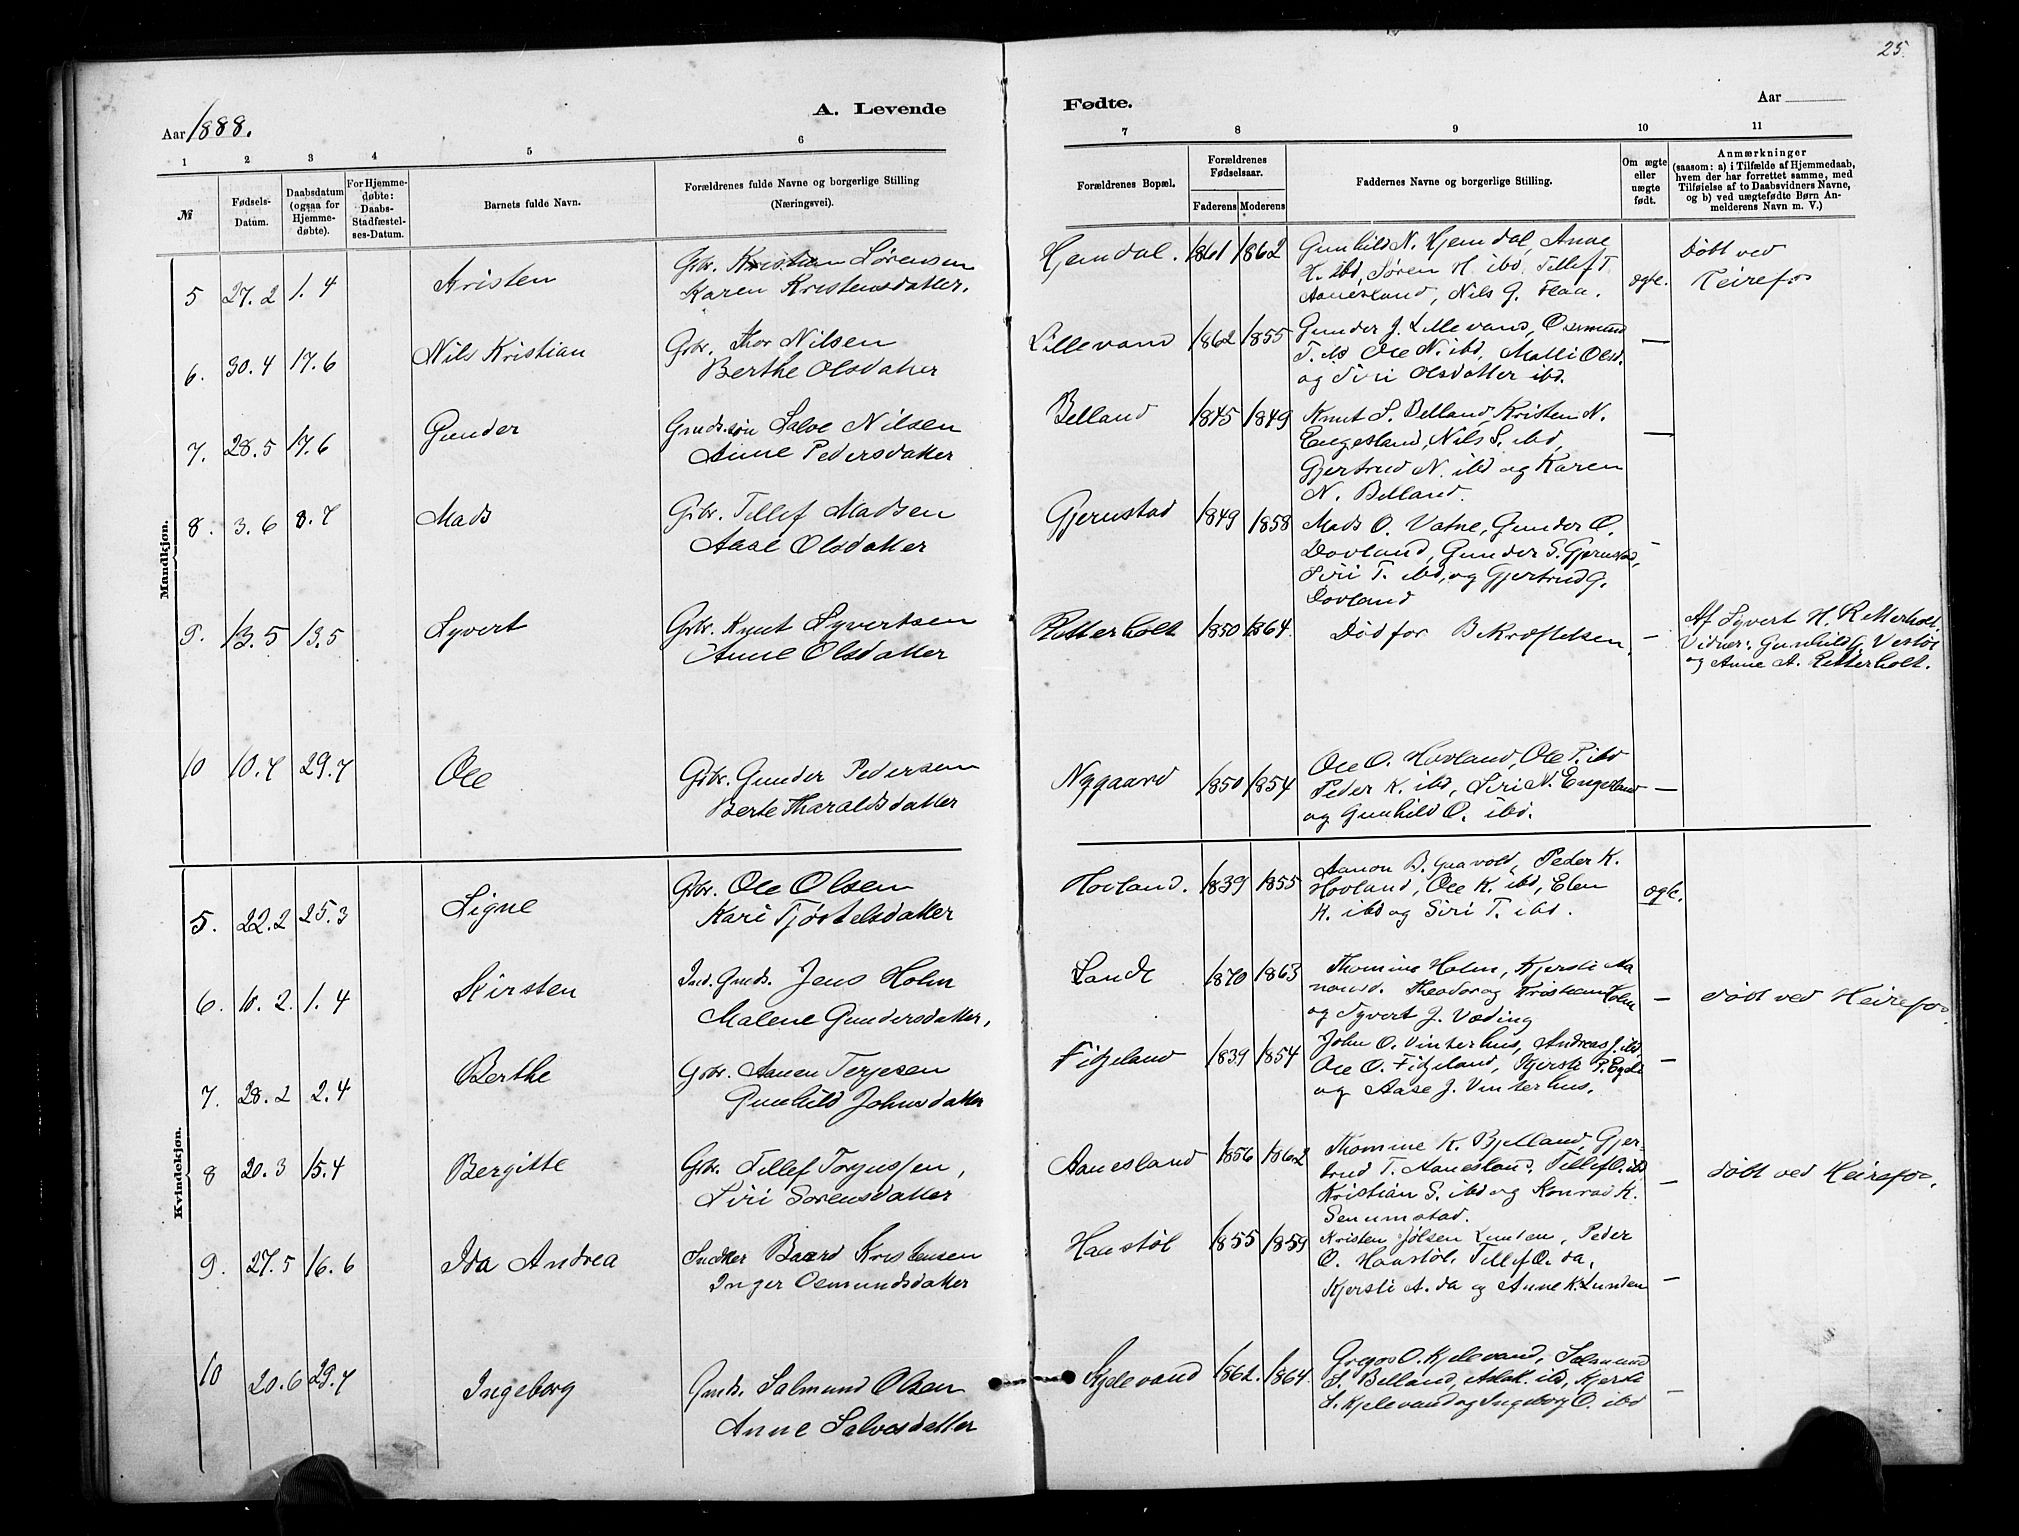 25.
Aar 1888.
A. Levende
Fødte.
Aar
1 2 3 4 5 6 7 8 9 10 11
№
Fødsels-Datum.
Daabsdatum (ogsaa for Hjemme-døbte).
For Hjemme-døbte: Daabs-Stadfæstel-ses-Datum.
Barnets fulde Navn.
Forældrenes fulde Navne og borgerlige Stilling (Næringsvei).
Forældrenes Bopæl.
Forældrenes Fødselsaar.
Faderens Moderens
Faddernes Navne og borgerlige Stilling.
Om ægte eller uægte født.
Anmærkninger (saasom: a) i Tilfælde af Hjemmedaab, hvem der har forrettet samme, med Tilføielse af to Daabsvidners Navne, og b) ved uægtefødte Børn An-melderens Navn m. V.)
Mandkjøn.
5 27.2 1.4 Kristen
Gbr. Kristian Sørensen
Karen Kristensdatter.
Hjemdal. 1861 1862
Gunhild N. Hjemdal, Anne
K. ibd, Søren H. ibd. Tellef T.
Aanesland, Nils G. Flaa.
ægte.
Døbt ved
Heirefos
6. 30.4 17.6 Nils Kristian
Gbr. Thor Nilsen
Berthe Olsdatter
Lillevand 1862 1855
Gunder J. Lillevand, Osmund
T. ibd Ole N. ibd, Malli Olsd.
og Siri Olsdatter ibd.
—
7. 28.5 17.6 Gunder
Grndssøn Salve Nilsen
Anne Pedersdatter
Belland 1845 1849
Knut S. Belland, Kristen N.
Engesland, Nils S. ibd,
Gjertrud N. ibd og Karen
N. Belland.
—
8. 3.6 8.7 Mads
Gbr. Tellef Madsen
Aase Olsdatter
Gjernstad 1849 1858
Mads O. Vatne, Gunder O.
Dovland, Gunder S. Gjernstad,
Siri T. ibd, og Gjertrud G.
Dovland
—
9. 13.5 13.5 Syvert
Gbr. Knut Syvertsen
Anne Olsdatter
Retterholt 1850 1864.
Død for Bekræftelsen.
—
Af Syvert H. Retterholt.
Vidner: Gunhild G. Vestøl
og Anne A. Retterholt.
10 10.7 29.7 Ole
Gbr. Gunder Pedersen
Berte Tharaldsdatter
Nygaard 1850 1854
Ole O. Hovland, Ole P. ibd
Peder K. ibd, Siri N. Engesland
og Gunhild O. ibd.
—
Kvindekjøn.
5. 22.2 25.3 Signe
Gbr. Ole Olsen
Kari Tjøstelsdatter
Hovland. 1839 1855
Aanon B. Guavold, Peder K.
Hovland, Ole K. ibd, Elen
K. ibd og Siri T. ibd.
ægte.
6. 10.2. 1.4 Kirsten
Ind. Gmds. Jens Holm
Malene Gundersdatter,
Sande 1870 1863
Thomine Holm, Kjersti Aa-
nonsd. Theodor og Kristian Holm
og Syvert J. Væding
—
Døbt ved Heirefos.
7. 28.2 2.4 Berthe
Gbr. Aanen Terjesen
Gunhild Johnsdatter
Fitjeland 1839 1854
John O. Vinterhus, Andreas J. ibd,
Ole O. Fitjeland, Kjersti P. Egde
og Aase J. Vinterhus.
—
8 20.3 15.4 Bergitte
Gbr. Tellef Torjussen,
Siri Sørensdatter
Aanesland 1856 1862
Thomine K. Bjelland, Gjer-
trud T. Aanesland, Tellef O. ibd
Kristian S. ibd og Konrad K.
Senumstad.
—
Døbt ved Heirefos.
9. 27.5 16.6 Ida Andrea
Inderst Baard Kristensen
Inger Osmundsdatter
Haustøl 1855 1859
Kristen Jølsen Lunden, Peder
O. Haustøl, Tellef O. da,
Kjersti A. da og Anne K. Lunden
—
10 20.6 29.7 Ingeborg
Gmds. Salmund Olsen
Anne Salvesdatter
Kjelevand 1862. 1864
Gregos O. Kjelevand, Salmund
S. Belland, Aslak. ibd, Kjersti
S. Kjelevand og Ingeborg O. ibd
—